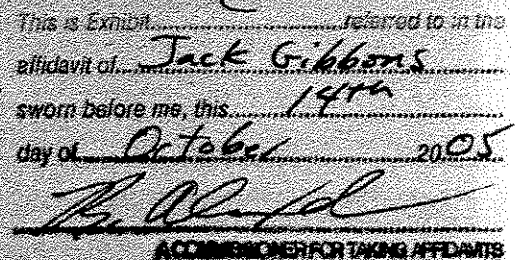 This is Exhibit....................referred to in the
affidavit of....Jack Gibbons
sworn before me, this....14th
day of....October....2005
A COMMISSIONER FOR TAKING AFFIDAVITS